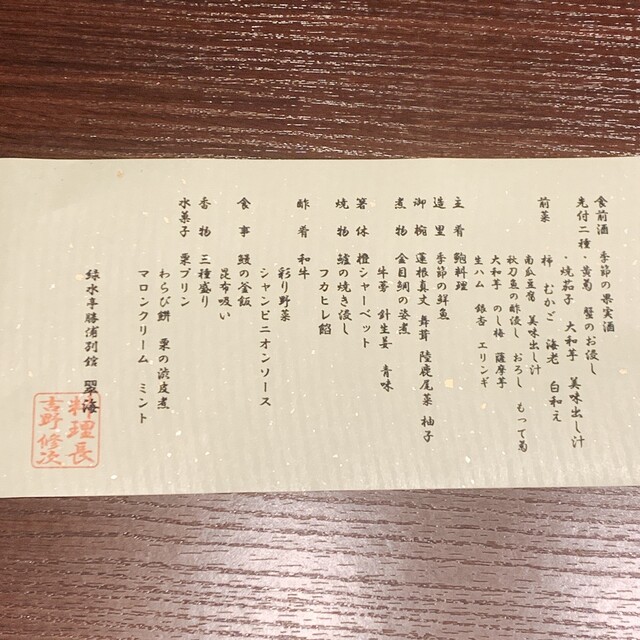 食前酒 季節の果実酒
先付二種・黄菊 蟹のお浸し
・焼茄子 大和芋 美味出し汁
前菜 柿 むかご 海老 白和え
南瓜豆腐 美味出し汁
秋刀魚の酢浸し おろし もって菊
大和芋 のし梅 薩摩芋
生ハム 銀杏 エリンギ
主肴 鮑料理
造里 季節の鮮魚
御椀 蓮根真丈 舞茸 陸鹿尾菜 柚子
煮物 金目鯛の姿煮
牛蒡 針生姜 青味
箸休 橙シャーベット
焼物 鱸の焼き浸し
フカヒレ餡
酢肴 和牛
彩り野菜
シャンピニオンソース
食事 鰻の釜飯
昆布吸い
香物 三種盛り
水菓子 栗プリン
わらび餅 栗の渋皮煮
マロンクリーム ミント
緑水亭勝浦別館 翠海
料理長
吉野修次